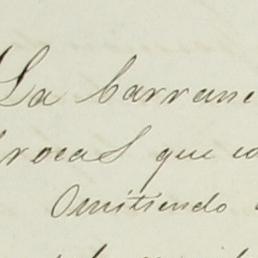 La barranc
rocas que co
Omitiendo